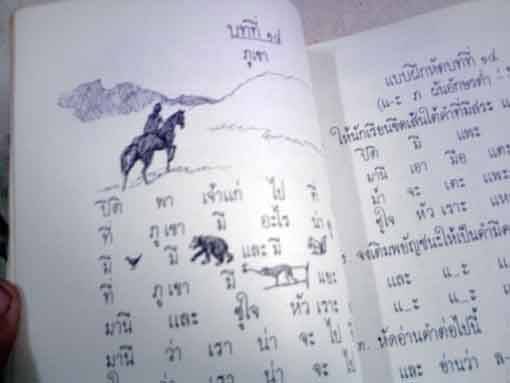 บทที่ ๑๔
ภูเขา
ปิติ พา เจ้าแก่ ไป ที่
ที่ ภูเขา มี อะไร น่า
มี มี และ มี
ที่ ภูเขา มี และ
มานี และ ชูใจ หัวเราะ
มานี ว่า เรา น่า จะ ไป
ว่า เรา น่า จะ ไป
แบบฝึกหัดบทที่ ๑๔
ให้นักเรียนขีดเส้นใต้คำที่มีสระ
ปิติ มี และ
มานี เอา มือ แตะ
ม้า จะ เตะ แพะ
ชูใจ หัวเราะ
จงเติมพยัญชนะให้เป็นคำ
และ แ...ะ แ...ะ
แ...ะ แ...ะ
๓. หัดอ่านคำต่อไปนี้
และ อ่านว่า